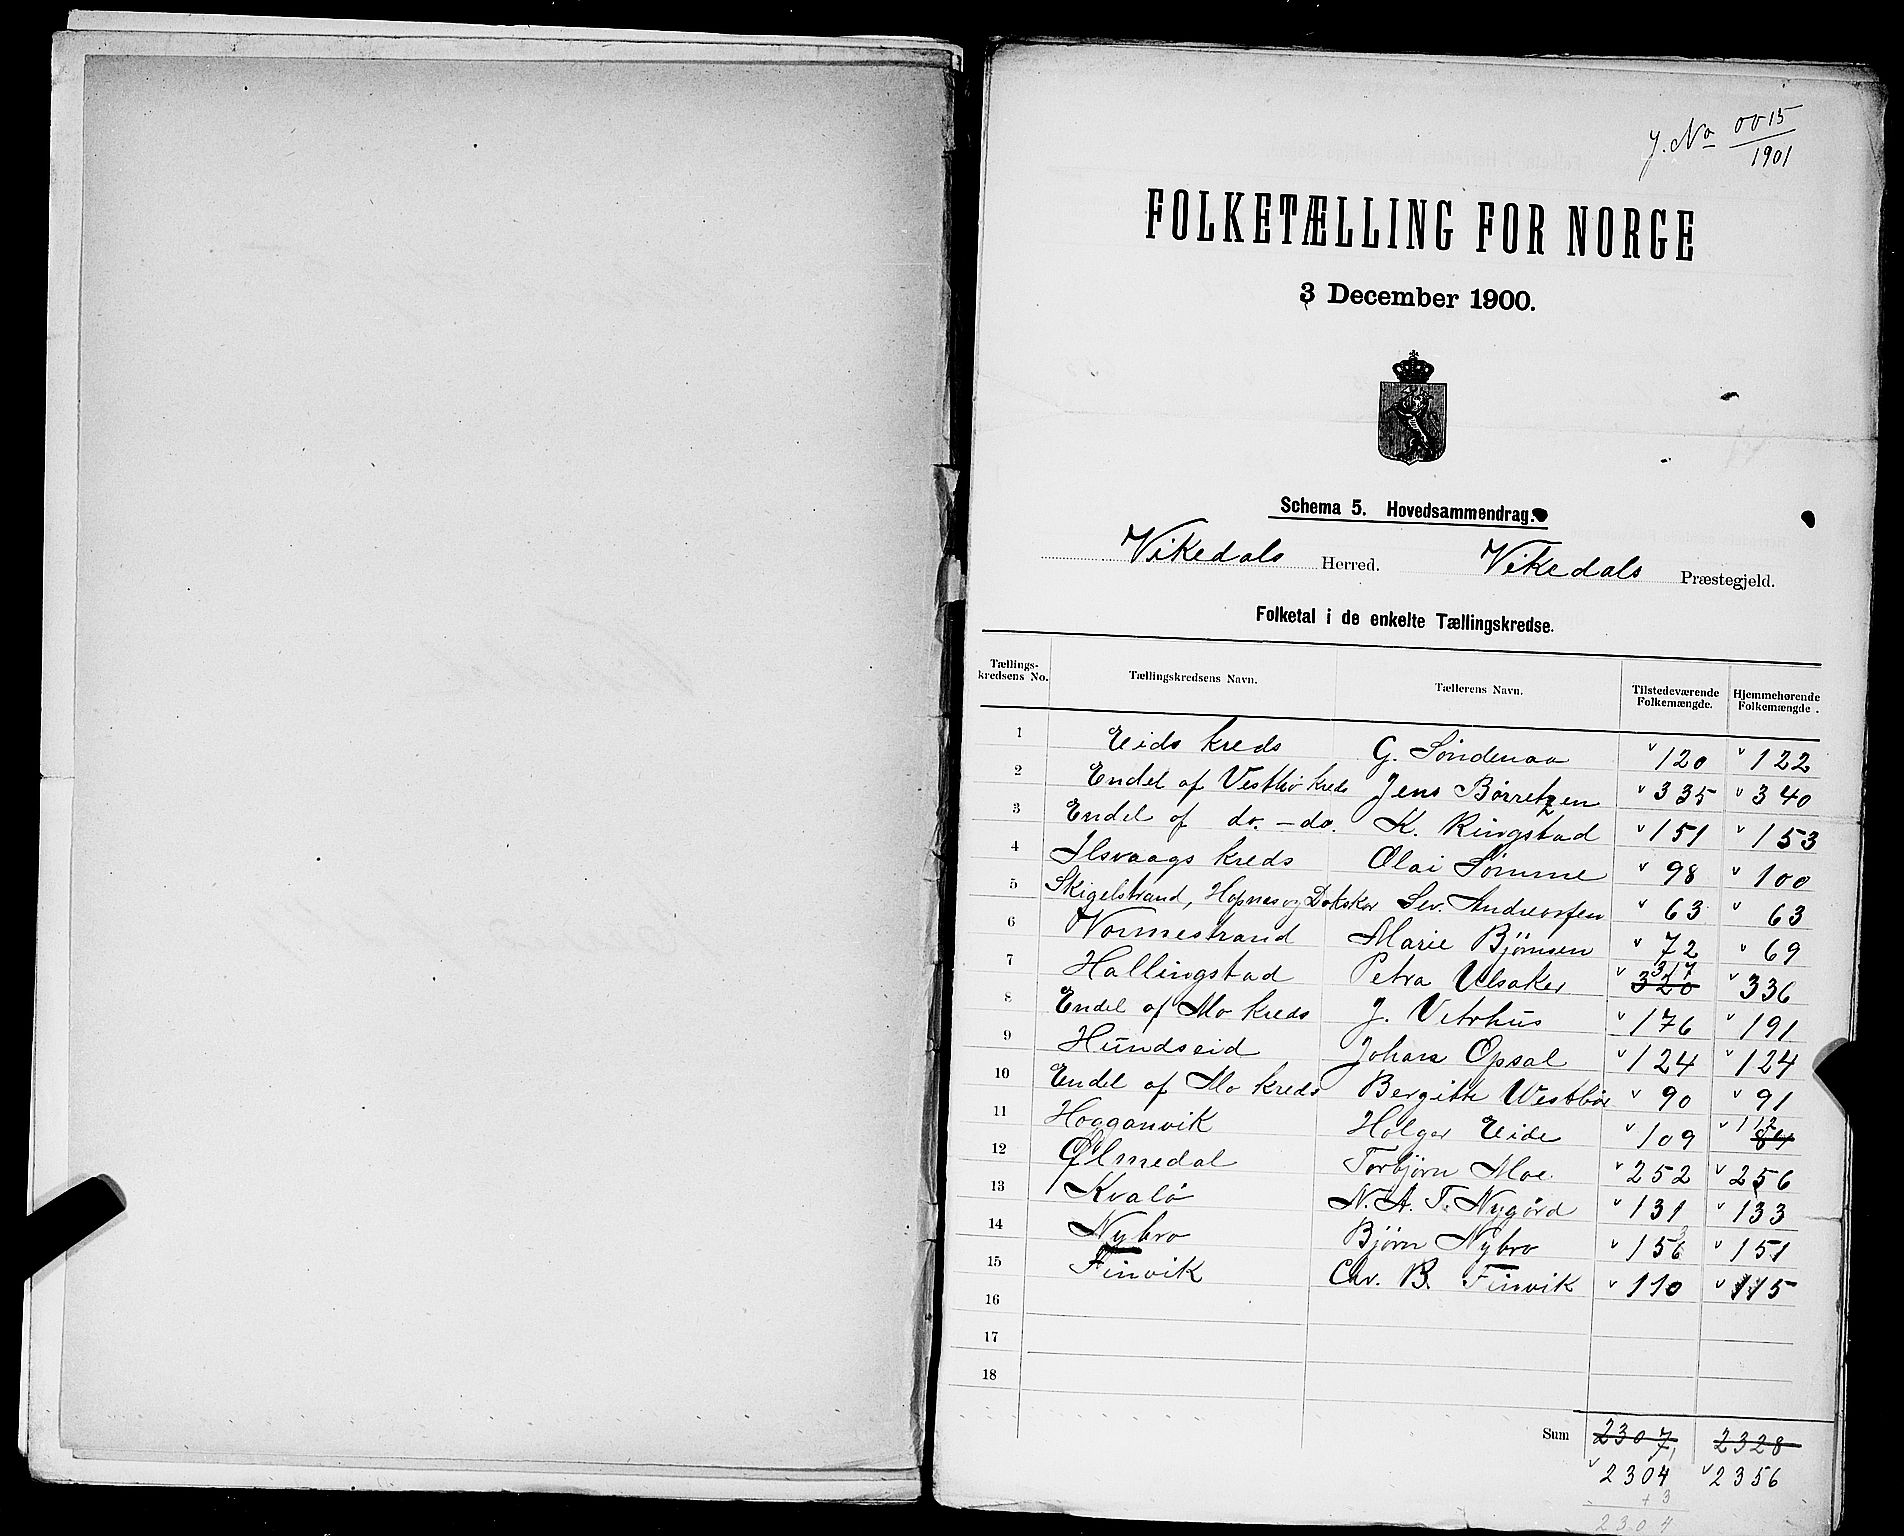 J. No 0015
1901
FOLKETÆLLING FOR NORGE
3 December 1900.
Schema 5. Hovedsammendrag.
Vikedals Herred. Vikedals Præstegjeld.
Folketal i de enkelte Tællingskredse.
Tællings-kredsens No. Tællingskredsens Navn. Tællerens Navn. Tilstedeværende Folkemængde. Hjemmehørende Folkemængde.
1 Eids kreds G. Söndenaa 120 122
2 Endel af Vestbø kreds Jens Børretzen 335 340
3 Endel af do. - do. K. Ringstad 151 153
4 Ilsvaags kreds Olai Sømme 98 100
5 Skigelstrand, Hopnes og Sev. Andreassen 63 63
6 Vormestrand Marie Bjørnsen 72 69
7 Hallingstad Petra Ulsaker 320 317 336
8 Endel af Mo kreds J. Vitrhus 176 191
9 Hundseid Johan Opsal 124 124
10 Endel af Mo kreds Bergitte Westbø 90 91
11 Hogganvik Holger Eide 109 112
12 Ølmedal Torbjørn Moe. 252 256
13 Kvalø N. A. T. Nygård 131 133
14 Nybro Bjørn Nybro 156 151
15 Finvik Chr. B. Finvik 110 115
16
17
18
Sum 2307 2328
2304 2356
+ 3
2304